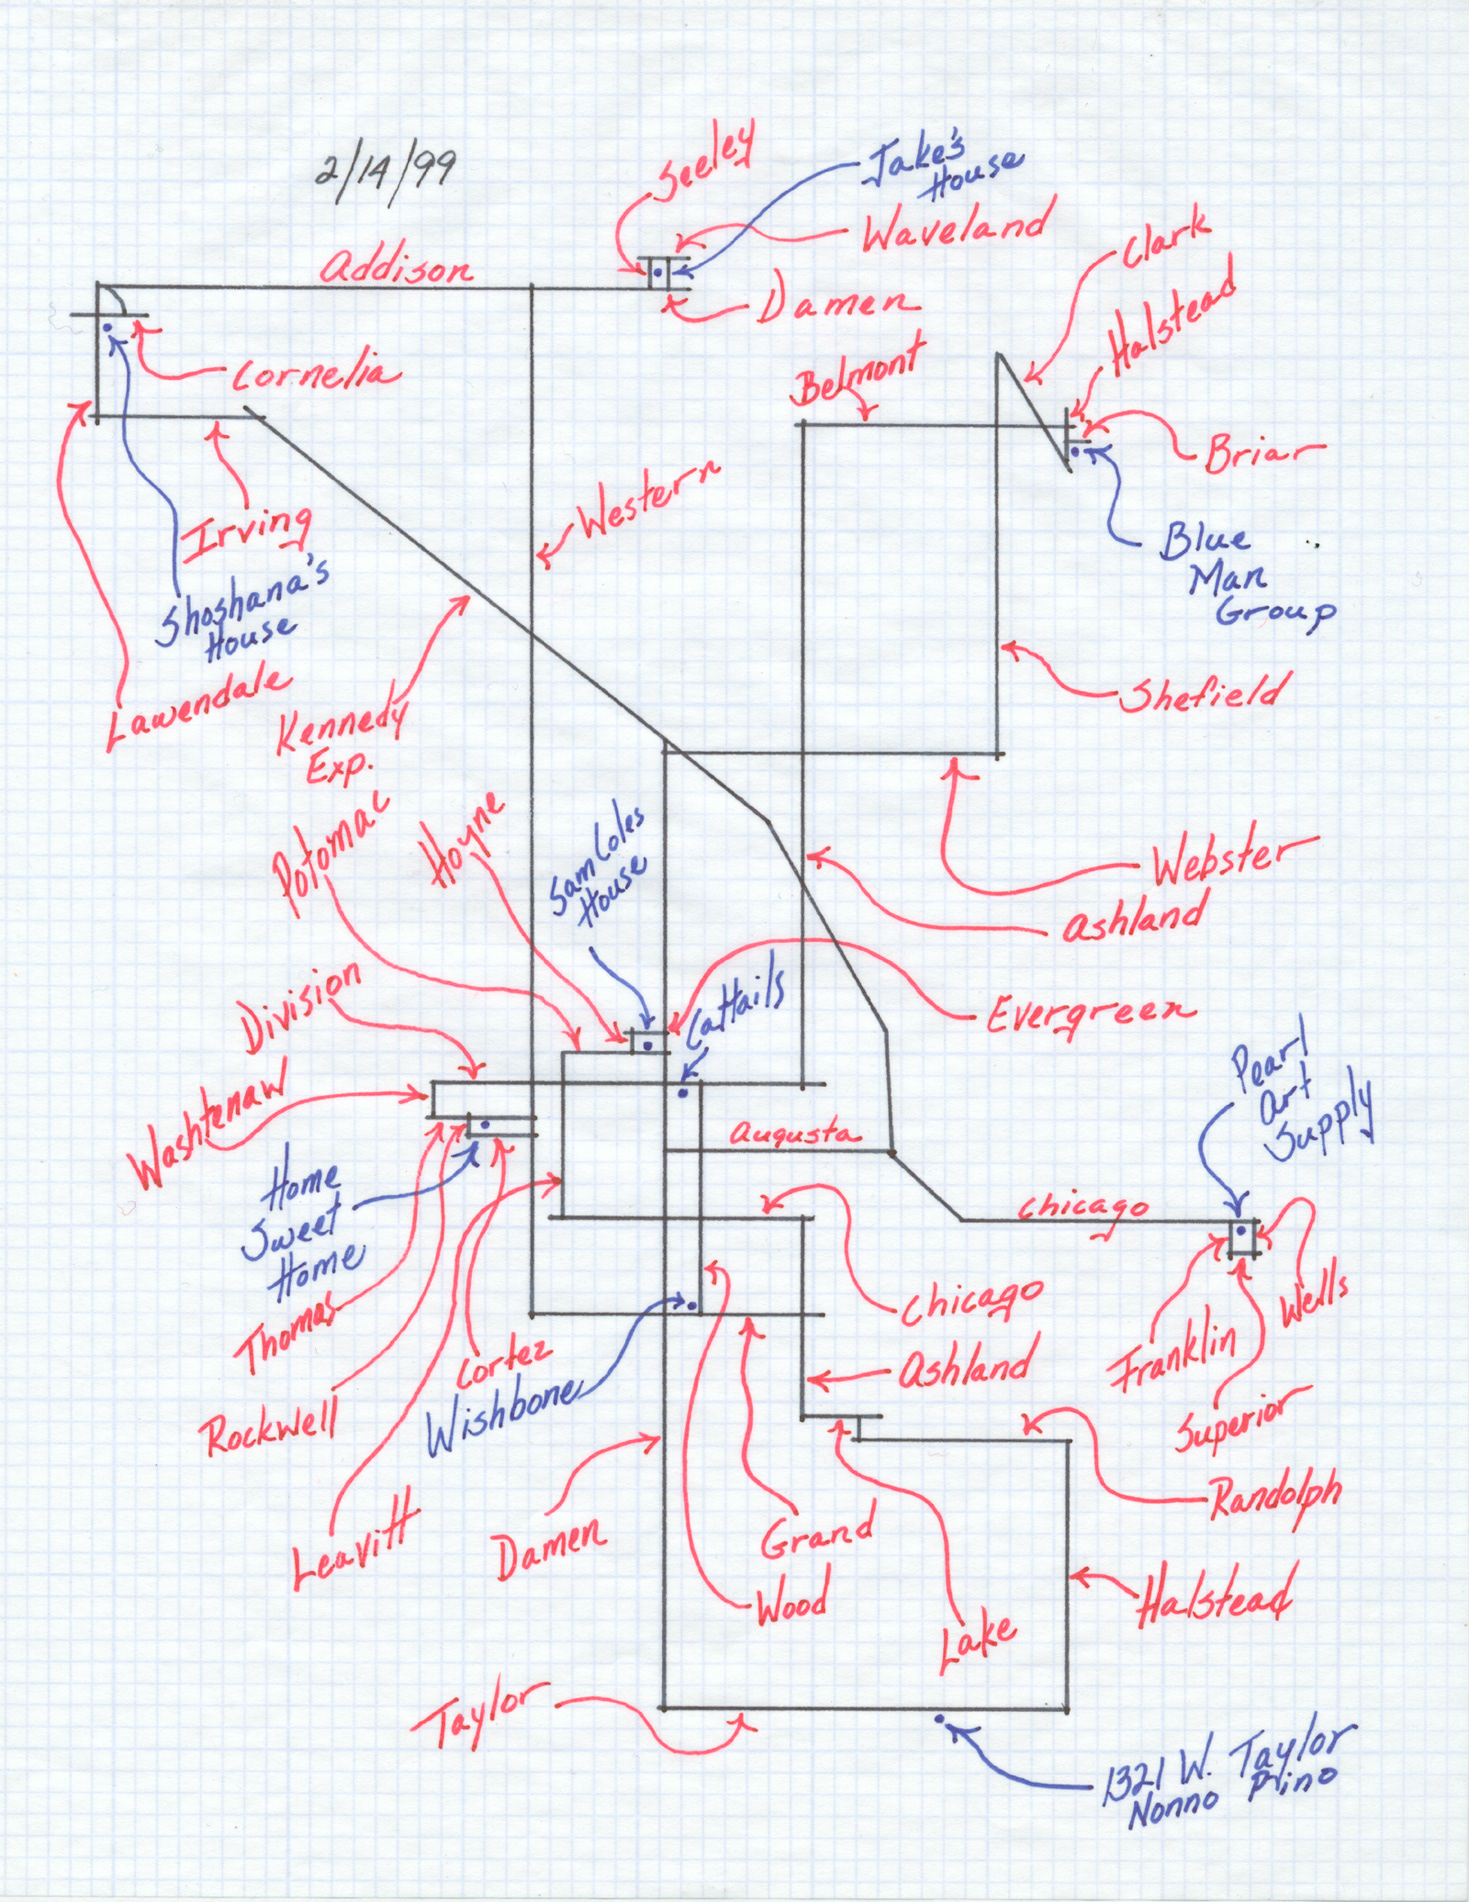 2/14/99
Seeley
Jake's
House
Waveland
Addison
Damen
Clark
Halstead
Belmont
Cornelia
Briar
Western
Irving
Blue
Man
Group
Shoshana's
House
Lawendale
Shefield
Kennedy
Exp.
Potomac
Hoyne
Sam Coles
House
Webster
Ashland
Division
Cattails
Evergreen
Washtenaw
Augusta
Pearl
Art
Supply
Home
Sweet
Home
Chicago
Chicago
Thomas
Cortez
Wells
Franklin
Ashland
Wishbone
Rockwell
Superior
Randolph
Leavitt
Damen
Grand
Wood
Halstead
Lake
Taylor
1321 W. Taylor
Nonno Pino